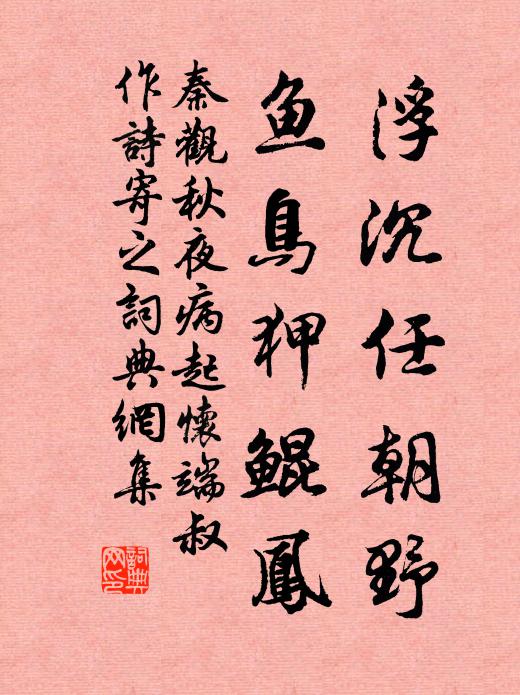 浮沉任朝野
鱼鳥狎鯤鳳
秦觀秋夜病起懷端叔
作詩寄之詞典網集
詞典網印